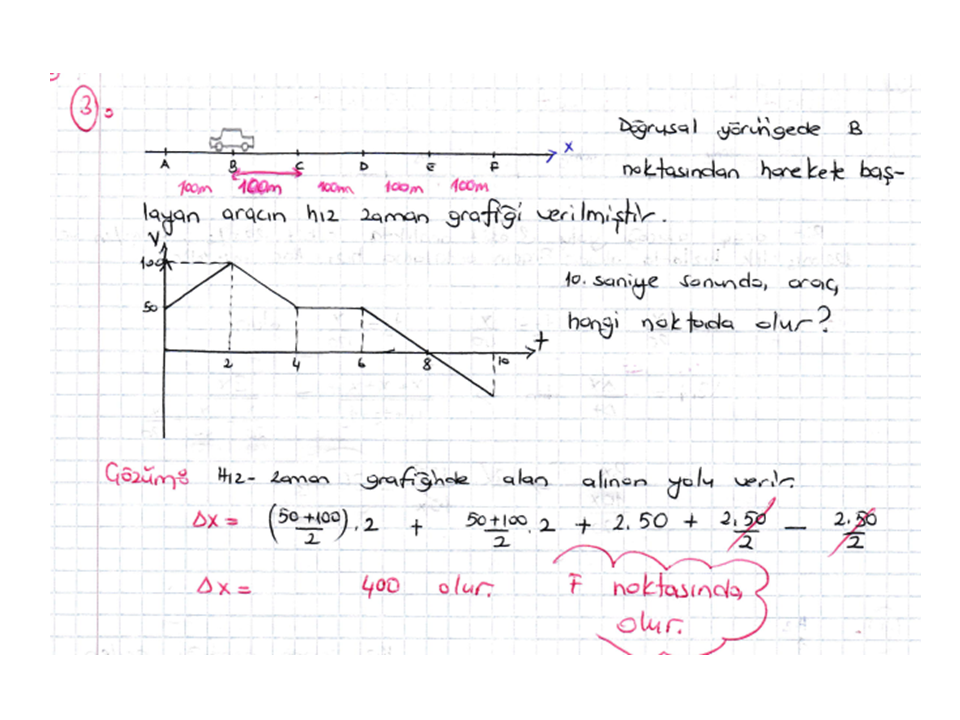 3.
Doğrusal yörüngede B
x
A B C D E F
noktasından harekete baş-
100m 100m 100m 100m 100m
layan aracın hız zaman grafiği verilmiştir.
V
100
10. saniye sonunda, araç,
50
hangi noktada olur?
t
2 4 6 8 10
Çözüm: Hız-zaman grafiğinde alan alınan yolu verir.
Δx = (50+100/2).2 + 50+100/2.2 + 2.50 + 2.50/2 - 2.50/2
Δx = 400 olur. F noktasında
olur.